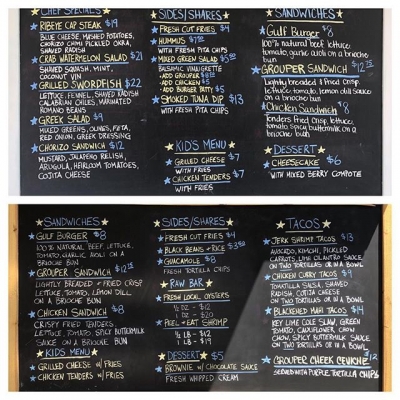 CHEF SPECIALS
RIBEYE CAP STEAK $19
BLUE CHEESE, MASHED POTATOES,
CHORIZO CHIMI PICKLED OKRA,
SHAVED RADISH
CRAB WATERMELON SALAD $21
SHAVED SQUASH, MINT,
COCONUT VIN
GRILLED SWORDFISH $22
LETTUCE, FENNEL, SHAVED RADISH
CALABRIAN CHILES, MARINATED
ROMANO BEANS
GREEK SALAD $9
MIXED GREENS, OLIVES, FETA,
RED ONION, GREEK DRESSING
CHORIZO SANDWICH $12
MUSTARD, JALAPENO RELISH,
ARUGULA, HEIRLOOM TOMATOES,
COJITA CHEESE
SIDES/SHARES
FRESH CUT FRIES $4
HUMMUS
WITH FRESH PITA CHIPS
MIXED GREEN SALAD
BALSAMIC VINAIGRETTE
ADD GROUPER $8
ADD CHICKEN $5
ADD BURGER PATTY $5
SMOKED TUNA DIP $13
WITH FRESH PITA CHIPS
KID'S MENU
GRILLED CHEESE $7
WITH FRIES
CHICKEN TENDERS $7
WITH FRIES
SANDWICHES
GULF BURGER $8
100% NATURAL BEEF LETTUCE
TOMATO, GARLIC AIOLI ON A BRIOCHE
BUN
GROUPER SANDWICH $12.75
LIGHTLY BREADED & FRIED CRISP
LETTUCE, TOMATO, LEMON DILL SAUCE
ON A BRIOCHE BUN
CHICKEN SANDWICH $8
TENDERS FRIED CRISP, LETTUCE,
TOMATO SPICY BUTTERMILK ON A
BRIOCHE BUN
DESSERT
CHEESECAKE $6
WITH MIXED BERRY COMPOTE
SANDWICHES
GULF BURGER $8
100% NATURAL BEEF, LETTUCE,
TOMATO, GARLIC, AIOLI ON A
BRIOCHE BUN
GROUPER SANDWICH
LIGHTLY BREADED & FRIED CRISP
LETTUCE, TOMATO, LEMON DILL
ON A BRIOCHE BUN
CHICKEN SANDWICH $8
CRISPY FRIED TENDERS
LETTUCE, TOMATO, SPICY BUTTERMILK
SAUCE ON A BRIOCHE BUN
KIDS MENU
GRILLED CHEESE W/FRIES
CHICKEN TENDERS W/FRIES
SIDES/SHARES
FRESH CUT FRIES $4
BLACK BEANS & RICE $3.50
GUACAMOLE $8
FRESH TORTILLA CHIPS
RAW BAR
FRESH LOCAL OYSTERS
1/2 DZ - $12
1 DZ - $20
PEEL & EAT SHRIMP
1/2 LB - $12
1 LB - $19
DESSERT $5
BROWNIE W/ CHOCOLATE SAUCE
FRESH WHIPPED CREAM
TACOS
JERK SHRIMP TACOS $13
AVOCADO, KIMCHI, PICKLED
CARROTS LIME CILANTRO SAUCE
ON TWO TORTILLAS OR IN A BOWL
CHICKEN CURRY TACOS $9
TOMATILLA SALSA, SHAVED
RADISH, COTIJA CHEESE
ON TWO TORTILLAS OR IN A BOWL
BLACKENED MAHI TACOS $14
KEY LIME COLE SLAW, GREEN
TOMATO, CAULIFLOWER, CHOW
CHOW, SPICY BUTTERMILK SAUCE
ON TWO TORTILLAS OR IN A BOWL
GROUPER CHEEK CEVICHE $12
SERVED WITH PURPLE TORTILLA CHIPS